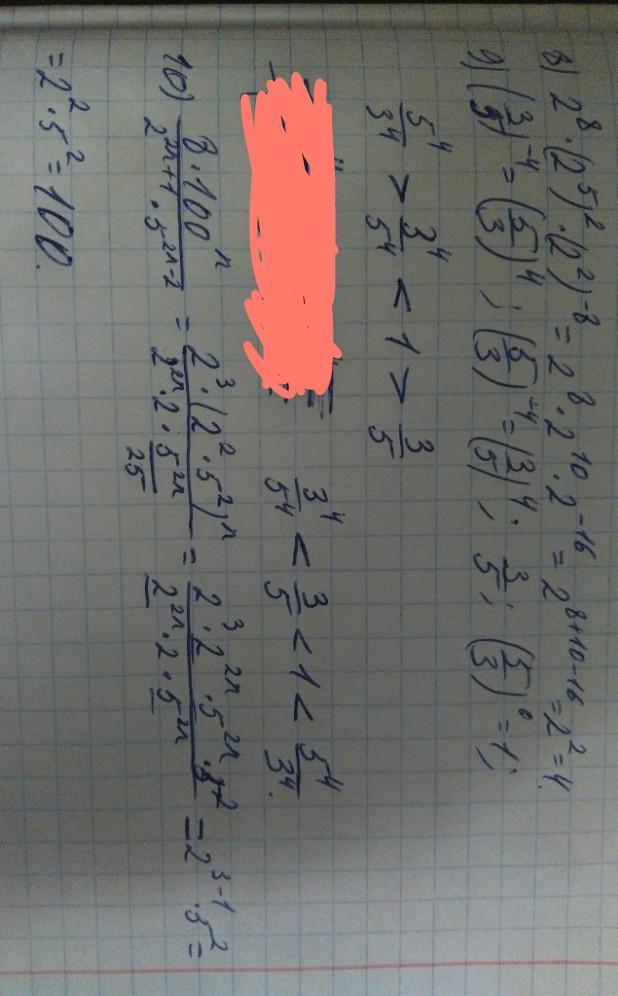 8) 2⁸ · (2⁵)² · (2²)⁻⁸ = 2⁸ · 2¹⁰ · 2⁻¹⁶ = 2⁸⁺¹⁰⁻¹⁶ = 2² = 4.
9) (3/5)⁻⁴ = (5/3)⁴ ; (5/3)⁻⁴ = (3/5)⁴ ; 3/5 ; (5/3)⁰ = 1 ;
5⁴/3⁴ > 3⁴/5⁴ < 1 > 3/5
3⁴/5⁴ < 3/5 < 1 < 5⁴/3⁴.
10) 8 · 100ⁿ / 2²ⁿ⁺¹ · 5²ⁿ⁻² = 2³ · (2² · 5²)ⁿ / 2²ⁿ · 2 · 5²ⁿ/25 = 2³ · 2²ⁿ · 5²ⁿ · 5² / 2²ⁿ · 2 · 5²ⁿ = 2³⁻¹ · 5² =
= 2² · 5² = 100.